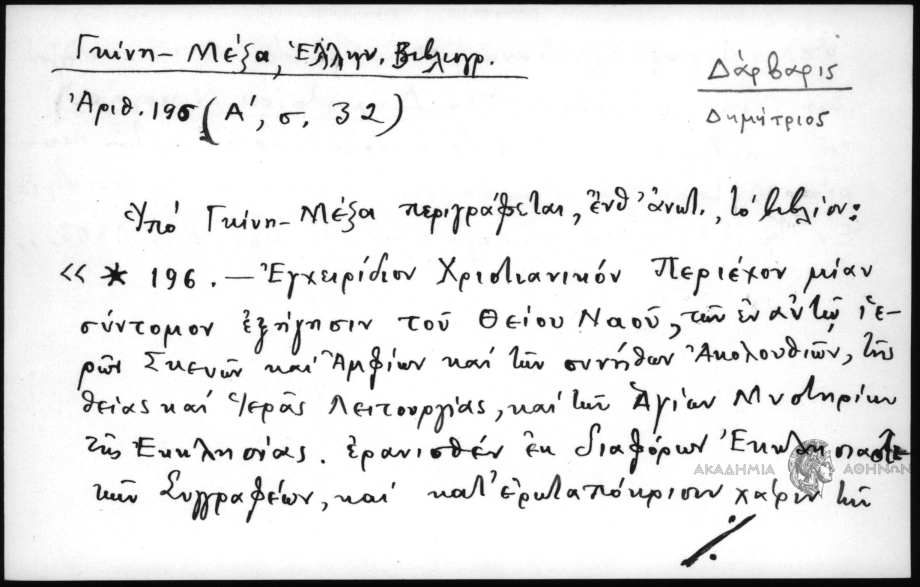 Γκίνη - Μέξα, Ἑλλην. Βιβλιογρ.
Ἀριθ. 196 (Α', σ. 32)
Δάρβαρις
Δημήτριος
Ὑπό Γκίνη - Μέξα περιγράφεται, ἔνθ' ἀνωτ., τό βιβλίον:
« * 196. — Ἐγχειρίδιον Χριστιανικόν Περιέχον μίαν
σύντομον ἐξήγησιν τοῦ Θείου Ναοῦ, τῶν ἐν αὐτῷ ἱε-
ρῶν Σκευῶν καί Ἀμφίων καί τῶν συνήθων Ἀκολουθιῶν, τῆς
θείας καί Ἱερᾶς Λειτουργίας, καί τῶν Ἁγίων Μυστηρίων
τῆς Ἐκκλησίας. Ἐρανισθέν ἐκ διαφόρων Ἐκκλησιαστι-
κῶν Συγγραφέων, καί κατ' ἐρωταπόκρισιν χάριν τῶν
./.
ΑΚΑΔΗΜΙΑ ΑΘΗΝΩΝ